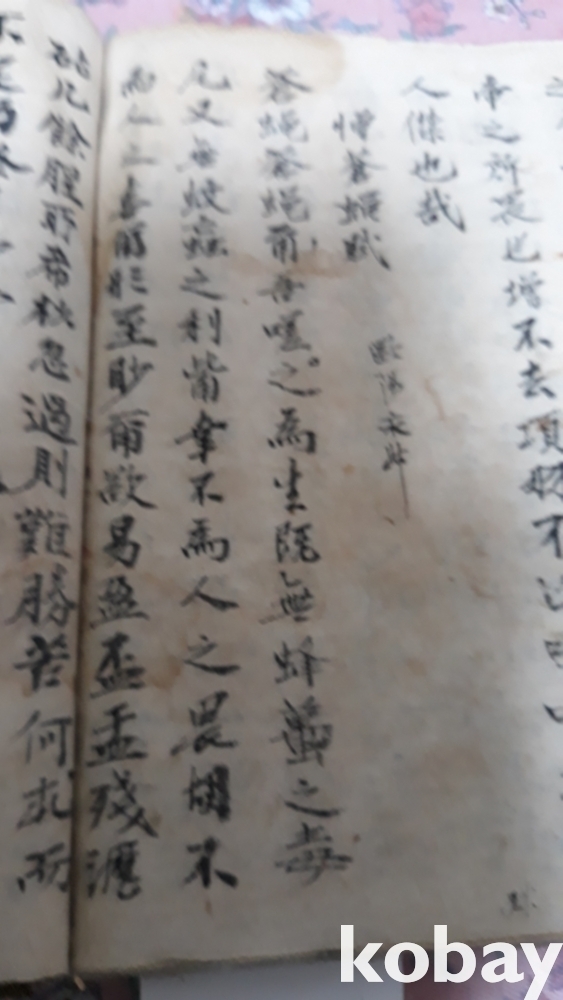 帝之所畏也增不去項
人傑也哉
憎蒼蠅賦 歐陽永叔
蒼蠅蒼蠅爾吾嗟之為生既無蜂蠆之毒
尾又無蚊蝱之利觜幸不為人之畏胡不
為人之喜爾形至眇爾欲易盈盃盂殘瀝
砧几餘腥所希秒忽過則難勝苦何求而
不足乃終
kobay